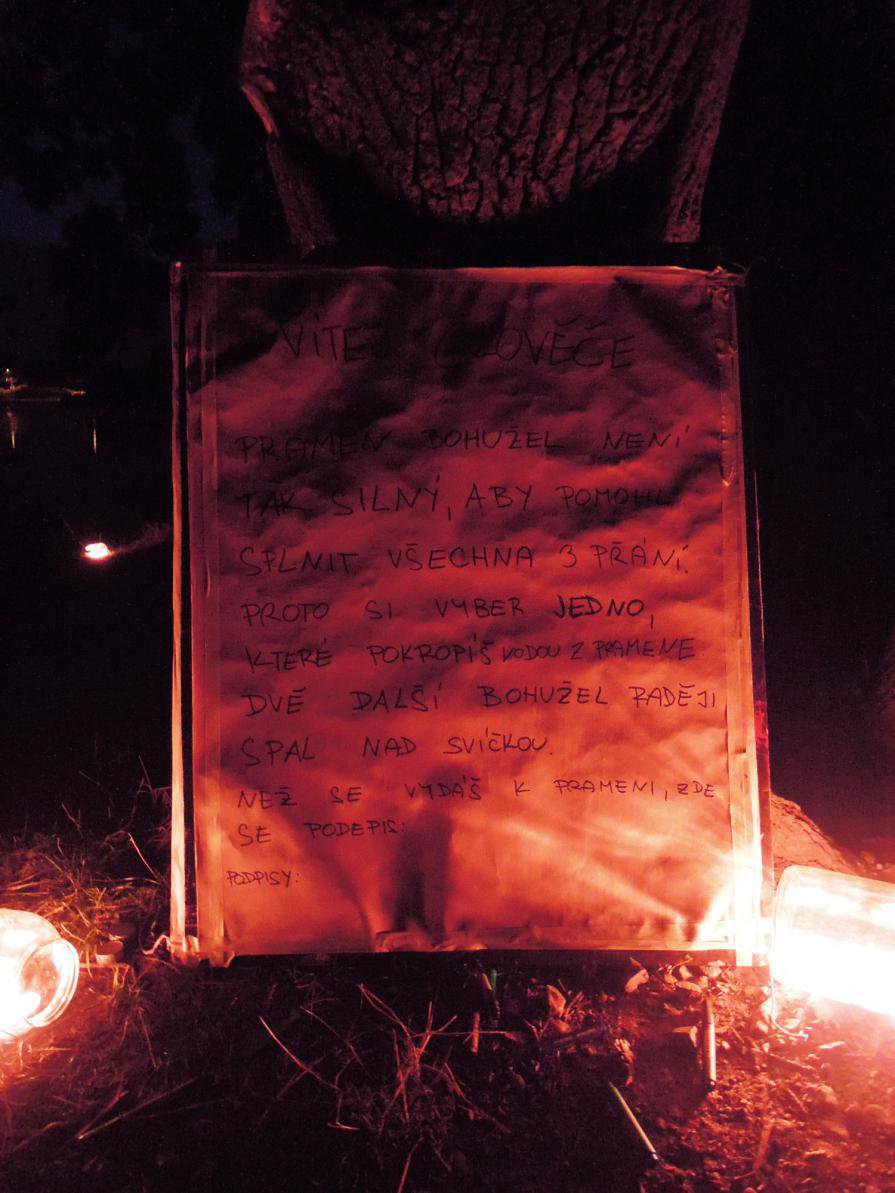 VÍTEJ ČLOVĚČE
PRAMEN BOHUŽEL NENÍ
TAK SILNÝ, ABY POMOHL
SPLNIT VŠECHNA 3 PŘÁNÍ.
PROTO SI VYBER JEDNO,
KTERÉ POKROPÍŠ VODOU Z PRAMENE.
DVĚ DALŠÍ BOHUŽEL RADĚJI
SPAL NAD SVÍČKOU.
NEŽ SE VYDÁŠ K PRAMENI, ZDE
SE PODEPIŠ:
PODPISY: